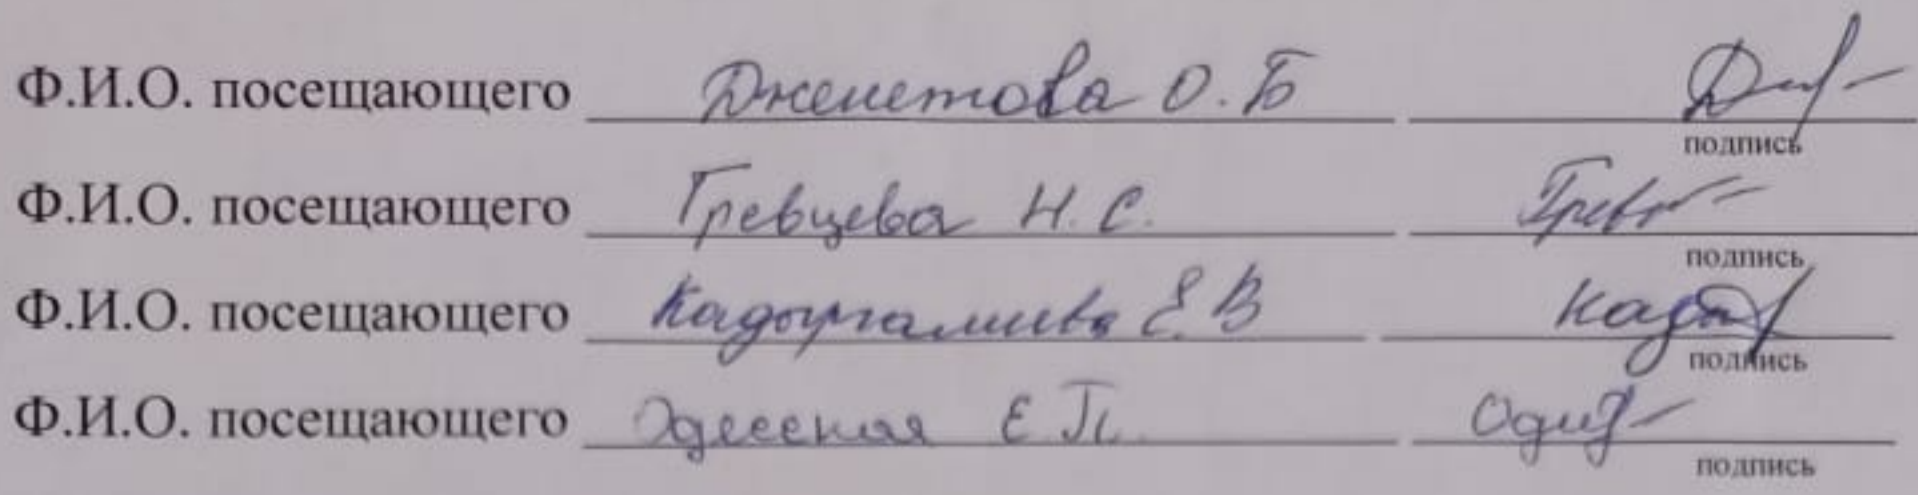 Ф.И.О. посещающего Дженетова О. Б
подпись
Ф.И.О. посещающего Гревцева Н. С. Гревц
подпись
Ф.И.О. посещающего Кадыргалиева Е. В
подпись
Ф.И.О. посещающего Одесская Е. П.
подпись